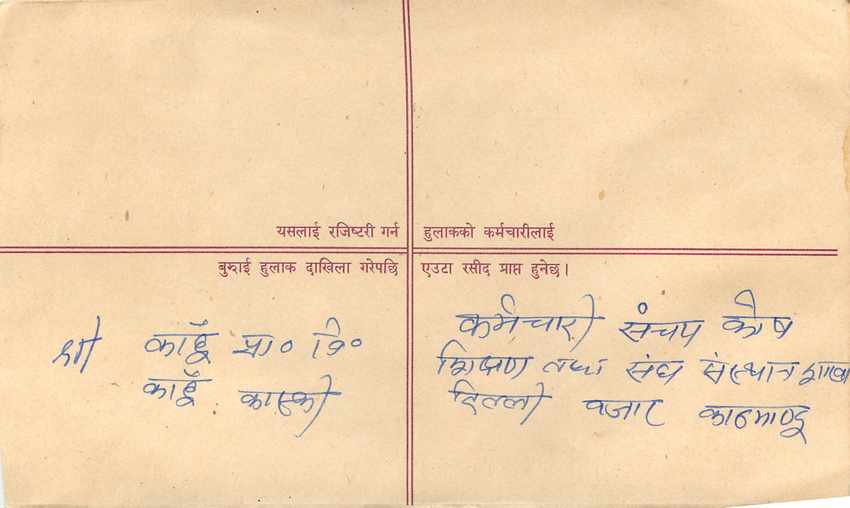 यसलाई रजिष्टरी गर्न हुलाकको कर्मचारीलाई
बुझाई हुलाक दाखिला गरेपछि एउटा रसीद प्राप्त हुनेछ।
श्री काहूँ प्रा० वि०
काहूँ कास्की
कर्मचारी संचय कोष
शिक्षण तथा संघ संस्थान शाखा
दिल्ली बजार काठमाण्डू